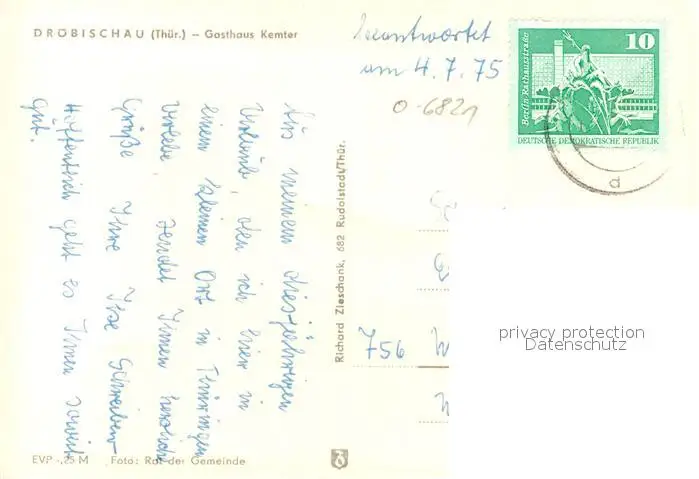 DRÖBISCHAU (Thür.) – Gasthaus Kemter
beantwortet
am 4.7.75
O-6821
10
Berlin · Rathausstraße
DEUTSCHE DEMOKRATISCHE REPUBLIK
d
Aus meinem diesjährigen
Urlaub, den ich hier in
einem kleinen Ort in Thüringen
verlebe, sendet Ihnen herzliche
Grüße Ihre Ilse Schreiber
Hoffentlich geht es Ihnen soweit
gut.
Richard Zieschank, 682 Rudolstadt/Thür.
756 W
privacy protection
Datenschutz
EVP -,25 M Foto: Rat der Gemeinde